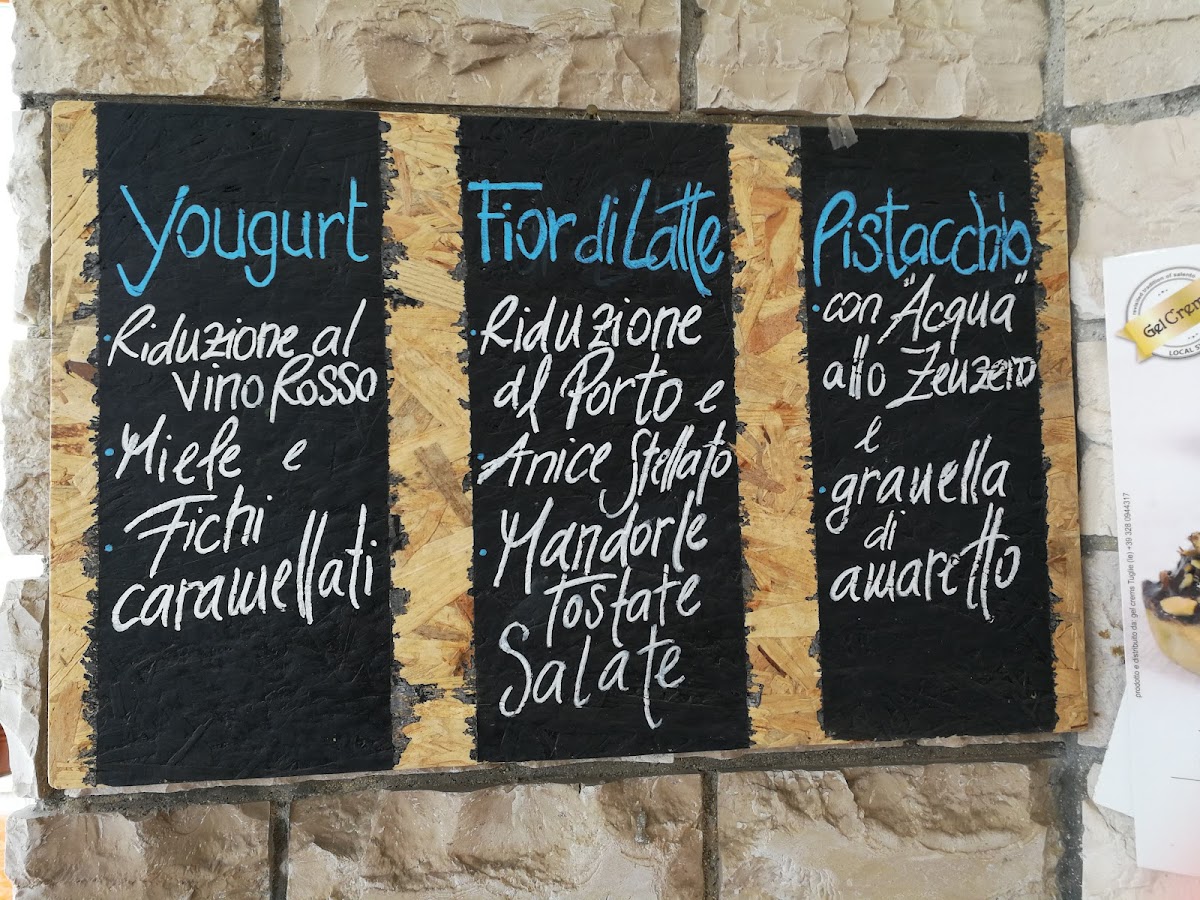 Yougurt
Riduzione al
vino Rosso
Miele e
Fichi
caramellati
Fior di Latte
Riduzione
al Porto e
Anice Stellato
Mandorle
Tostate
Salate
Pistacchio
con "Acqua"
allo Zenzero
e
granella
di
amaretto
Gel Crema
LOCAL
prodotto e distribuito da: gel crema Tuglie (le) +39 328 0944317